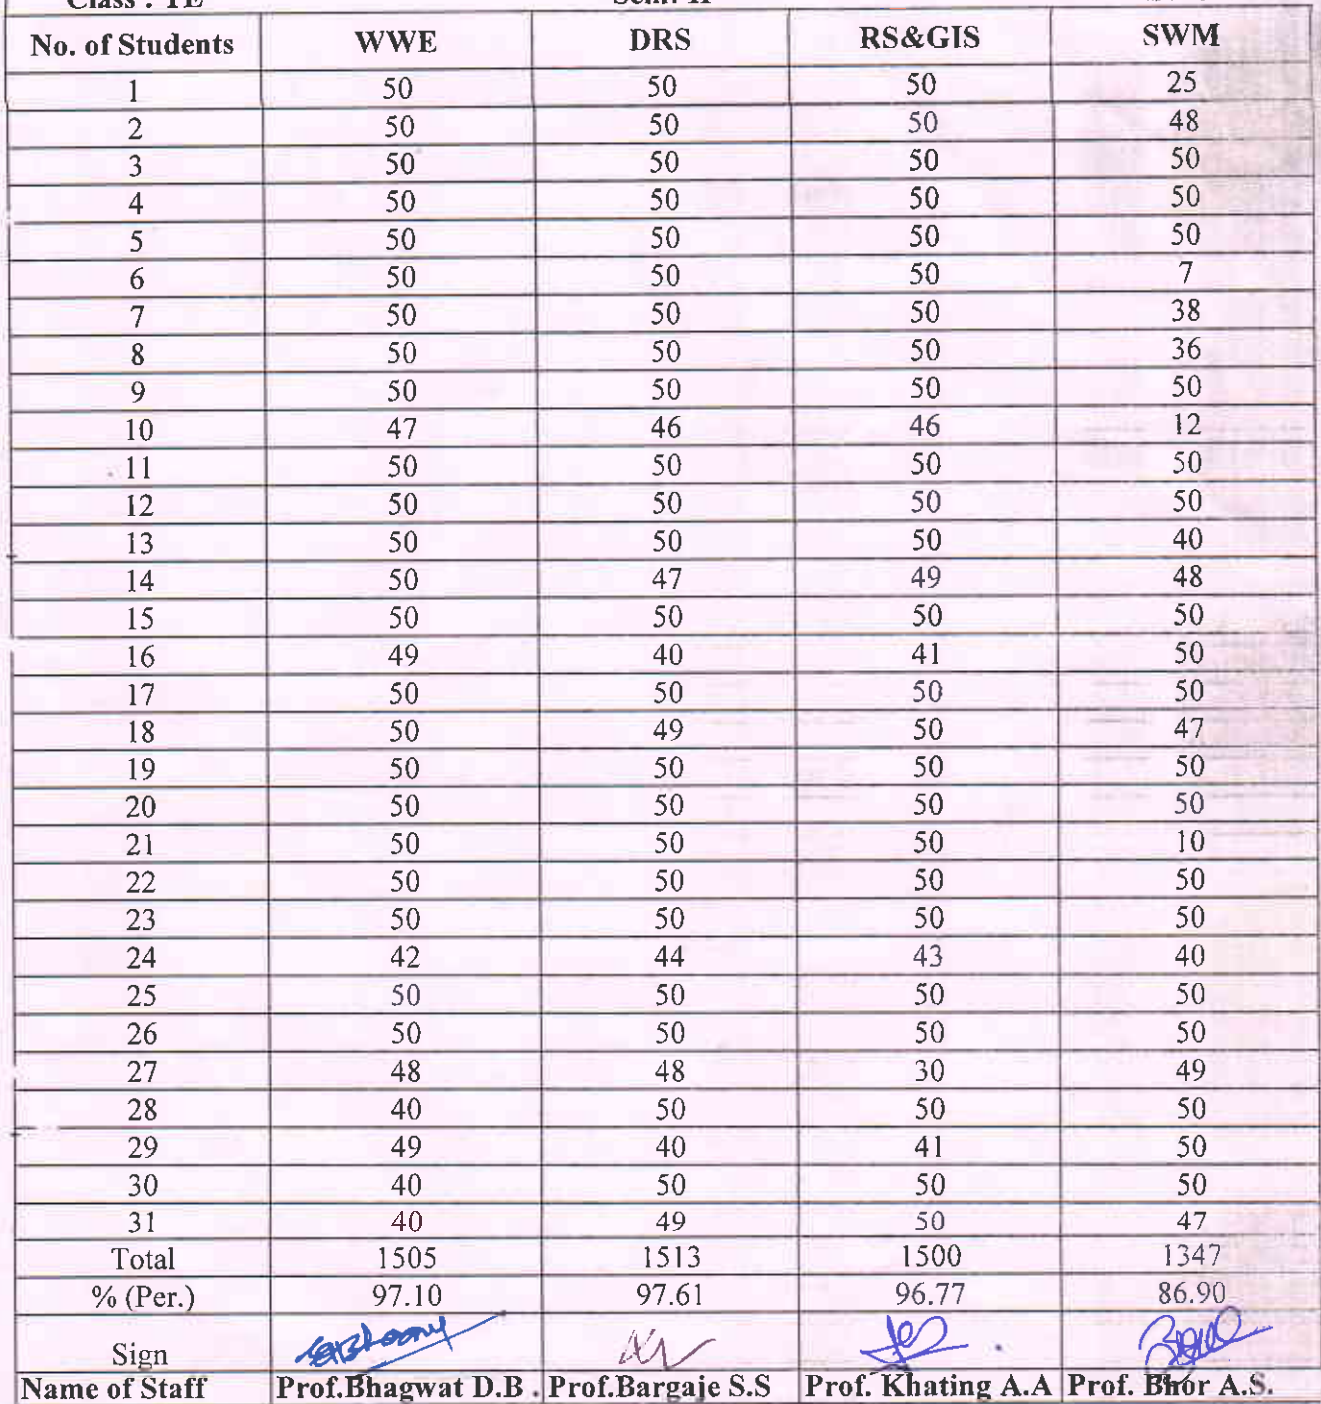 Class : TE Sem: II
No. of Students WWE DRS RS&GIS SWM
1 50 50 50 25
2 50 50 50 48
3 50 50 50 50
4 50 50 50 50
5 50 50 50 50
6 50 50 50 7
7 50 50 50 38
8 50 50 50 36
9 50 50 50 50
10 47 46 46 12
11 50 50 50 50
12 50 50 50 50
13 50 50 50 40
14 50 47 49 48
15 50 50 50 50
16 49 40 41 50
17 50 50 50 50
18 50 49 50 47
19 50 50 50 50
20 50 50 50 50
21 50 50 50 10
22 50 50 50 50
23 50 50 50 50
24 42 44 43 40
25 50 50 50 50
26 50 50 50 50
27 48 48 30 49
28 40 50 50 50
29 49 40 41 50
30 40 50 50 50
31 40 49 50 47
Total 1505 1513 1500 1347
% (Per.) 97.10 97.61 96.77 86.90
Sign
Name of Staff Prof.Bhagwat D.B . Prof.Bargaje S.S Prof. Khating A.A Prof. Bhor A.S.